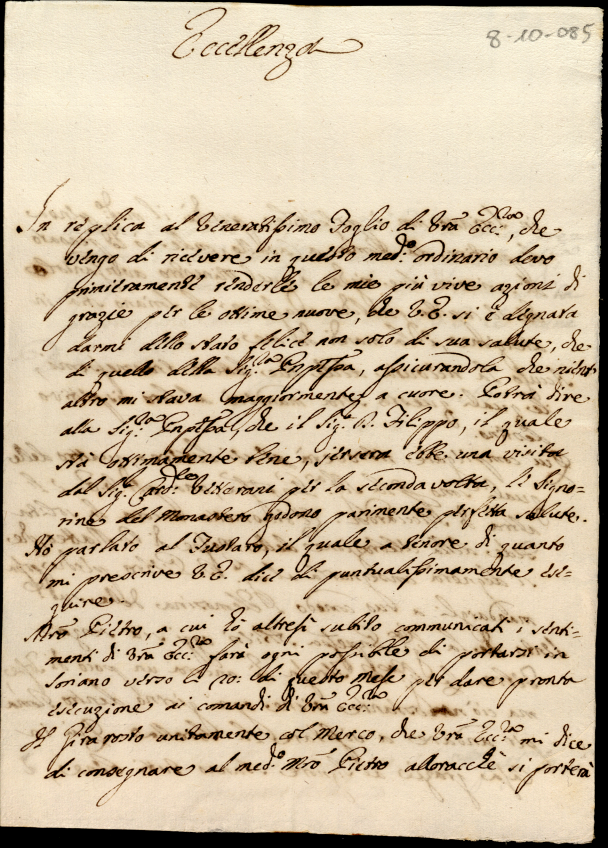 8-10-085
Eccellenza
In replica al Veneratissimo Foglio di Vrã Ecc:za, che
vengo di ricevere in questo med:o ordinario devo
primieramente renderle le mie più vive azioni di
grazie per le ottime nuove, che V.E. si è degnata
darmi dello stato felice non solo di sua salute, che
di quello della Sig:ra Pnpessa, assicurandola che niente
altro mi stava maggiormente a cuore. Potrà dire
alla Sig:ra Pnpessa, che il Sig:r D. Filippo, il quale
stà ottimamente bene, jersera ebbe una visita
dal Sig:r Card:le Veterani per la seconda volta, le Signo=
rine del Monastero godono parimente perfetta salute.
Hò parlato al Fustaro, il quale a tenore di quanto
mi prescrive V.E. dice di puntualissimamente ese=
guire.
Mrõ Pietro, a cui hò altresì subito communicati i senti=
menti di Vrã Ecc:za farà ogni possibile di portarsi in
Soriano verso li 20: di questo mese per dare pronta
esecuzione ai comandi di Vrã Ecc:za
Il Girarosto unitamente col Merco, che Vrã Ecc:za mi dice
di consegnare al med:o Mrõ Pietro alloracchè si porterà